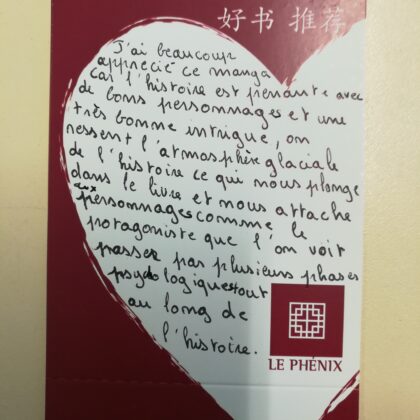 好书 推荐
J'ai beaucoup
apprécié ce manga
car l'histoire est prenante avec
de bons personnages et une
très bonne intrigue, on
ressent l'atmosphère glaciale
de l'histoire ce qui nous plonge
dans le livre et nous attache
aux
personnages comme le
protagoniste que l'on voit
passer par plusieurs phases
psychologiques tout
au long de
l'histoire.
LE PHÉNIX